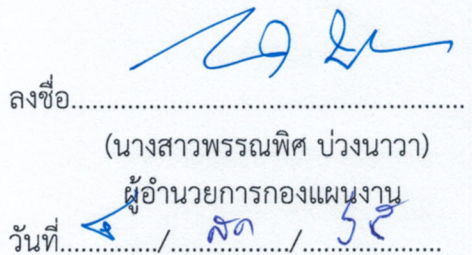 ลงชื่อ......................................................
(นางสาวพรรณพิศ บ่วงนาวา)
ผู้อำนวยการกองแผนงาน
วันที่............./......สค....../......๖๕......